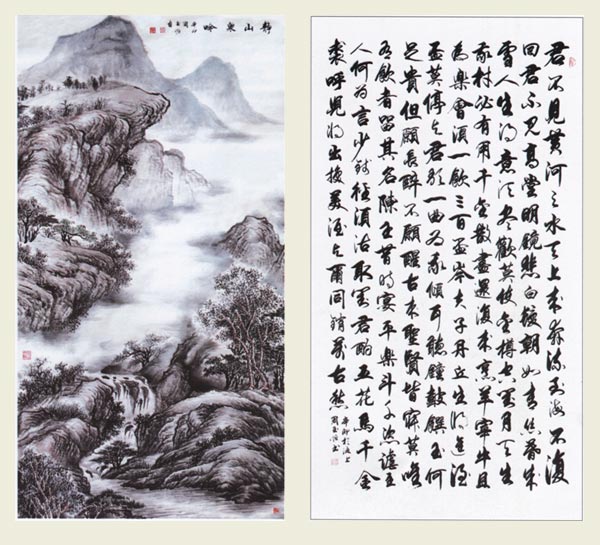 靜山泉吟
辛卯
君不見黃河之水天上来奔流到海不復
回君不見高堂明鏡悲白髮朝如青絲暮成
雪人生得意須尽歡莫使金樽空對月天生
我材必有用千金散盡還復来烹羊宰牛且
為樂會須一飲三百盃岑夫子丹丘生將進酒
盃莫停與君歌一曲為我傾耳聽鐘鼓饌玉何
足貴但願長醉不願醒古来聖賢皆寂莫唯
有飲者留其名陳王昔時宴平樂斗酒恣謔主
人何為言少錢徑須沽取對君酌五花馬千金
裘呼兒將出換美酒與爾同銷萬古愁
辛卯於海上